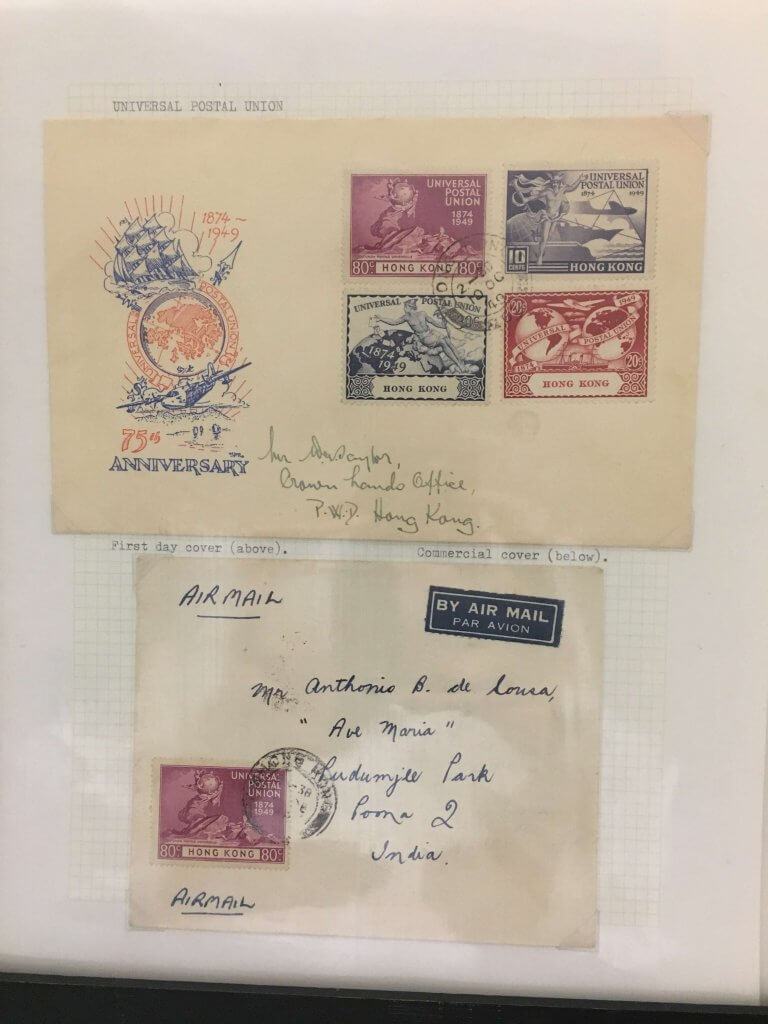 UNIVERSAL POSTAL UNION
1874 ~
1949
UNIVERSAL POSTAL UNION
75th
ANNIVERSARY
UNIVERSAL
POSTAL
UNION
1874
1949
80c HONG KONG 80c
UNIVERSAL
POSTAL UNION
1874 1949
10
CENTS
HONG KONG
UNIVERSAL POSTAL UNION
1874
1949
HONG KONG
1949
20c
UNIVERSAL POSTAL UNION
1874
20c
HONG KONG
Mr
Crown Lands Office,
P.W.D. Hong Kong.
First day cover (above).
Commercial cover (below).
AIRMAIL
BY AIR MAIL
PAR AVION
Mr Anthonio B. de Sousa,
"Ave Maria"
Pudumjee Park
Poona 2
India.
UNIVERSAL
POSTAL
UNION
1874
1949
80c HONG KONG 80c
AIRMAIL